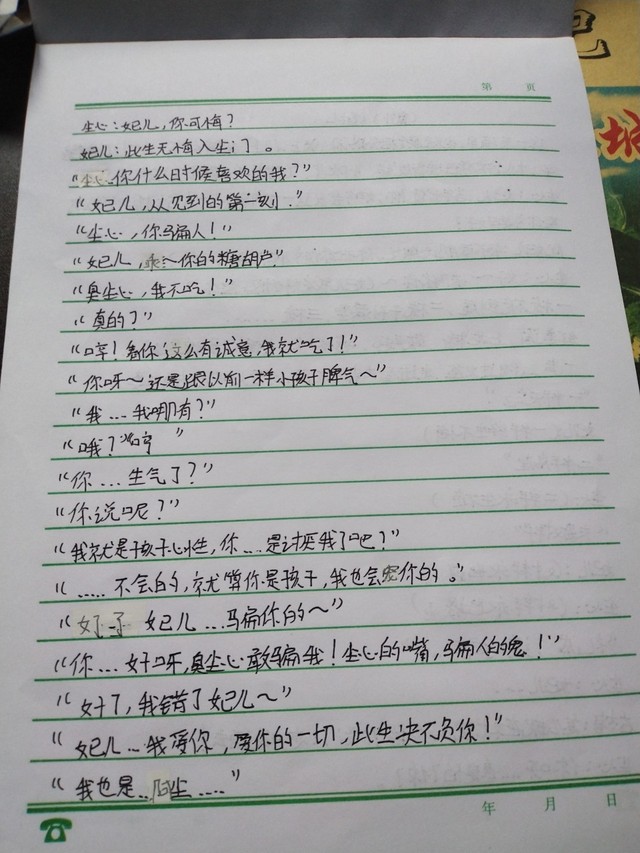 第 页
尘心：妃儿，你可悔？
妃儿：此生无悔入尘门。
“你什么时候喜欢的我？”
“妃儿，从见到的第一刻.”
“尘心，你骗人！”
“妃儿，乖～你的糖葫芦”
“臭尘心，我不吃！”
“真的？”
“哼！看你这么有诚意，我就吃了！”
“你呀～还是跟以前一样小孩子脾气～”
“我...我哪有？”
“哦？”“哼”
“你...生气了？”
“你说呢？”
“我就是孩子心性，你...是讨厌我了吧？”
“.....不会的，就算你是孩子，我也会宠你的。”
“妃儿...骗你的～”
“你...好呀，臭尘心敢骗我！尘心的嘴，骗人的鬼！”
“好了，我错了妃儿～”
“妃儿...我爱你，爱你的一切，此生决不负你！”
“我也是..尘....”
年 月 日
城